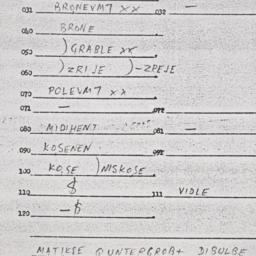 031 BRONEVMT XX 032 —
040 BRONE
050 )GRABLE XX
060 )ZRIJE )-ZPEJE
070 POLEVMT XX
071 — 072
080 MIDIHENT 081 —
090 KOSENEN 092
100 KO,SE )NISKOSE
110 $ 111 VIDLE
120 -$
MATIKSE DIBULBE